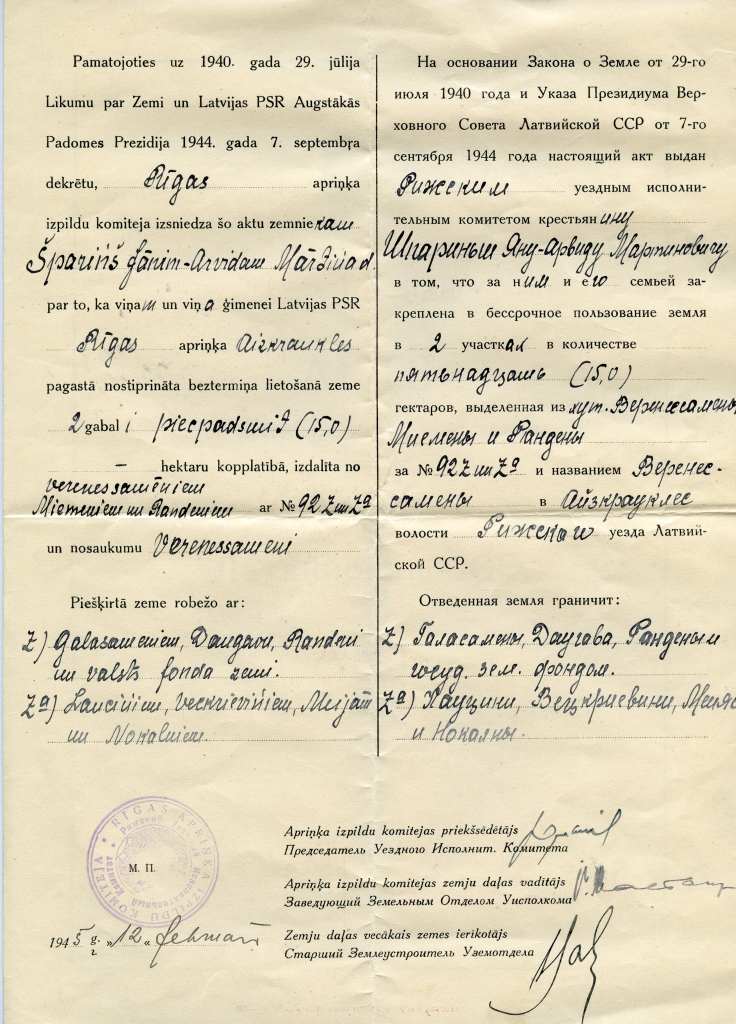 Pamatojoties uz 1940. gada 29. jūlija
Likumu par Zemi un Latvijas PSR Augstākās
Padomes Prezidija 1944. gada 7. septembŗa
dekrētu, Rīgas apriņķa
izpildu komiteja izsniedza šo aktu zemniekam
Špariņš Jānim-Arvidam Mārtiņa d.
par to, ka viņam un viņa ģimenei Latvijas PSR
Rīgas apriņķa Aizkraukles
pagastā nostiprināta beztermiņa lietošanā zeme
2 gabali piecpadsmit (15,0)
— hektaru kopplatībā, izdalīta no
Verenessamēniem
Miemeniem un Randeniem ar № 92 Z un Zª
un nosaukumu Verenessameni
Piešķirtā zeme robežo ar:
Z) Galasameniem, Daugavu, Randeni
un valsts fonda zemi.
Zª) Lauciņiem, Veckrieviņiem, Meijām
un Nokalniem.
На основании Закона о Земле от 29-го
июля 1940 года и Указа Президиума Вер-
ховного Совета Латвийской ССР от 7-го
сентября 1944 года настоящий акт выдан
Рижским уездным исполни-
тельным комитетом крестьянину
Шпариньш Яну-Арвиду Мартиновичу
в том, что за ним и его семьей за-
креплена в бессрочное пользование земля
в 2 участках в количестве
пятьнадцать (15,0)
гектаров, выделенная из хут. Веренессамены
Миемены и Рандены
за № 92 Z ии Zª и названием Веренес-
самены в Айзкрауклес
волости Рижского уезда Латвий-
ской ССР.
Отведенная земля граничит:
Z) Галасамены, Даугава, Рандены и
госуд. зем. фондом.
Zª) Лауцини, Вецкриевини, Меияс
и Нокалны.
RĪGAS APRIŅĶA IZPILDU KOMITEJA
Исполнительный Комитет
М. П.
1945 g. „12„ februarī
г.
Apriņķa izpildu komitejas priekšsēdētājs
Председатель Уездного Исполнит. Комитета
Apriņķa izpildu komitejas zemju daļas vadītājs
Заведующий Земельным Отделом Уисполкома
Zemju daļas vecākais zemes ierīkotājs
Старший Землеустроитель Уземотдела